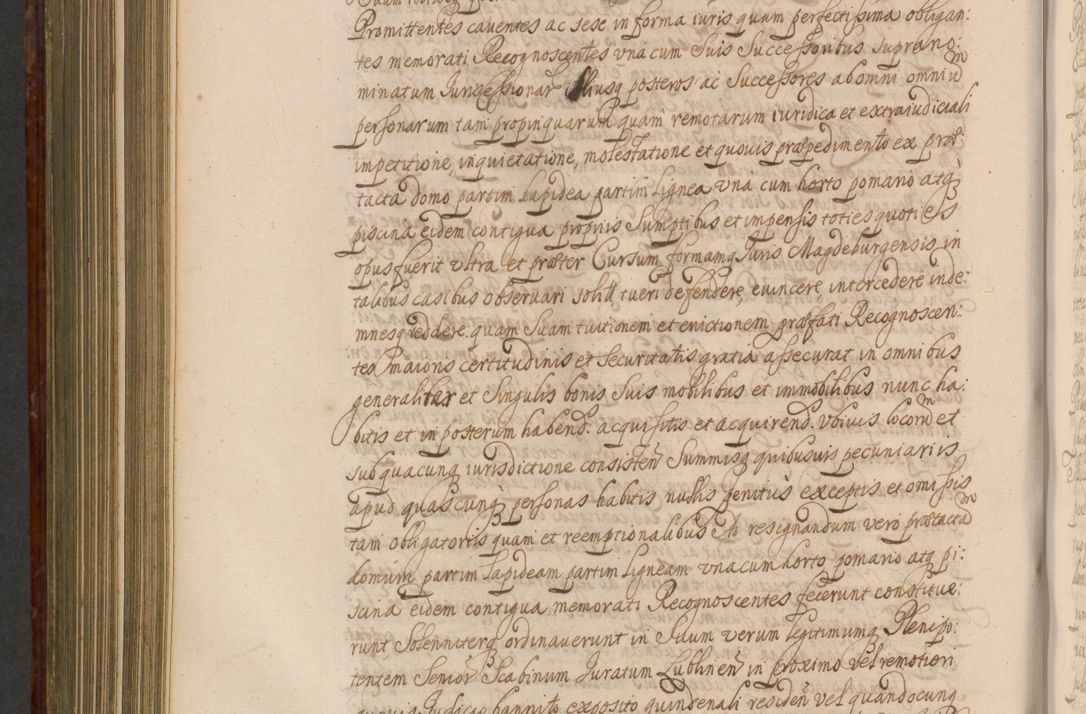 Promittentes caventes ac sese in forma iuris quam perfectissima obligan:
tes memorati Recognoscentes vna cum Suis Successoribus supra no:
minatum Iuris Cessionar illiusq posteros ac Successores ab omni omniū
personarum tam propinquarum quam remotarum iuridica et extrajudiciali
impetitione, inquietatione, molestatione et quouis præpedimento ex præ:
tacta domo partim lapidea partim lignea vna cum horto pomario atq
piscina eidem contigua proprijs Sumptibus et impensis toties quoties
opus fuerit vltra et præter Cursum formamq Iuris Magdeburgensis in
talibus casibus observari solitt tueri defendere, euincere, intercedere inde:
mnesq reddere. quam Suam tuitionem et euictionem præfati Recognoscen:
tes maioris certitudinis et Securitatis gratia assecurat in omnibus
generaliter et Singulis bonis Suis mobilibus et immobilibus nunc ha:
bitis et in posterum habend. acquisitis et acquirend. vbiuis locorū et
sub quacunq iurisdictione consisteñ Summisq quibusuis pecuniarijs
apud quascunq personas habitis nullis penitus exceptis et omissis
tam obligatorijs quam et reemptionalibus Ad resignandum vero prætactā
domum partim lapideam partim ligneam vna cum horto pomario atq pi:
scina eidem contigua memorati Recognoscentes fecerunt constitue:
runt, Solenniterq ordinauerunt in Suum verum legitimumq Plenipo:
tentem Senior Scabinum Iuratum Lublineñ in proximo vel remotiori
Iudicio bannito exposito quindenali resideñ vel quandocunq